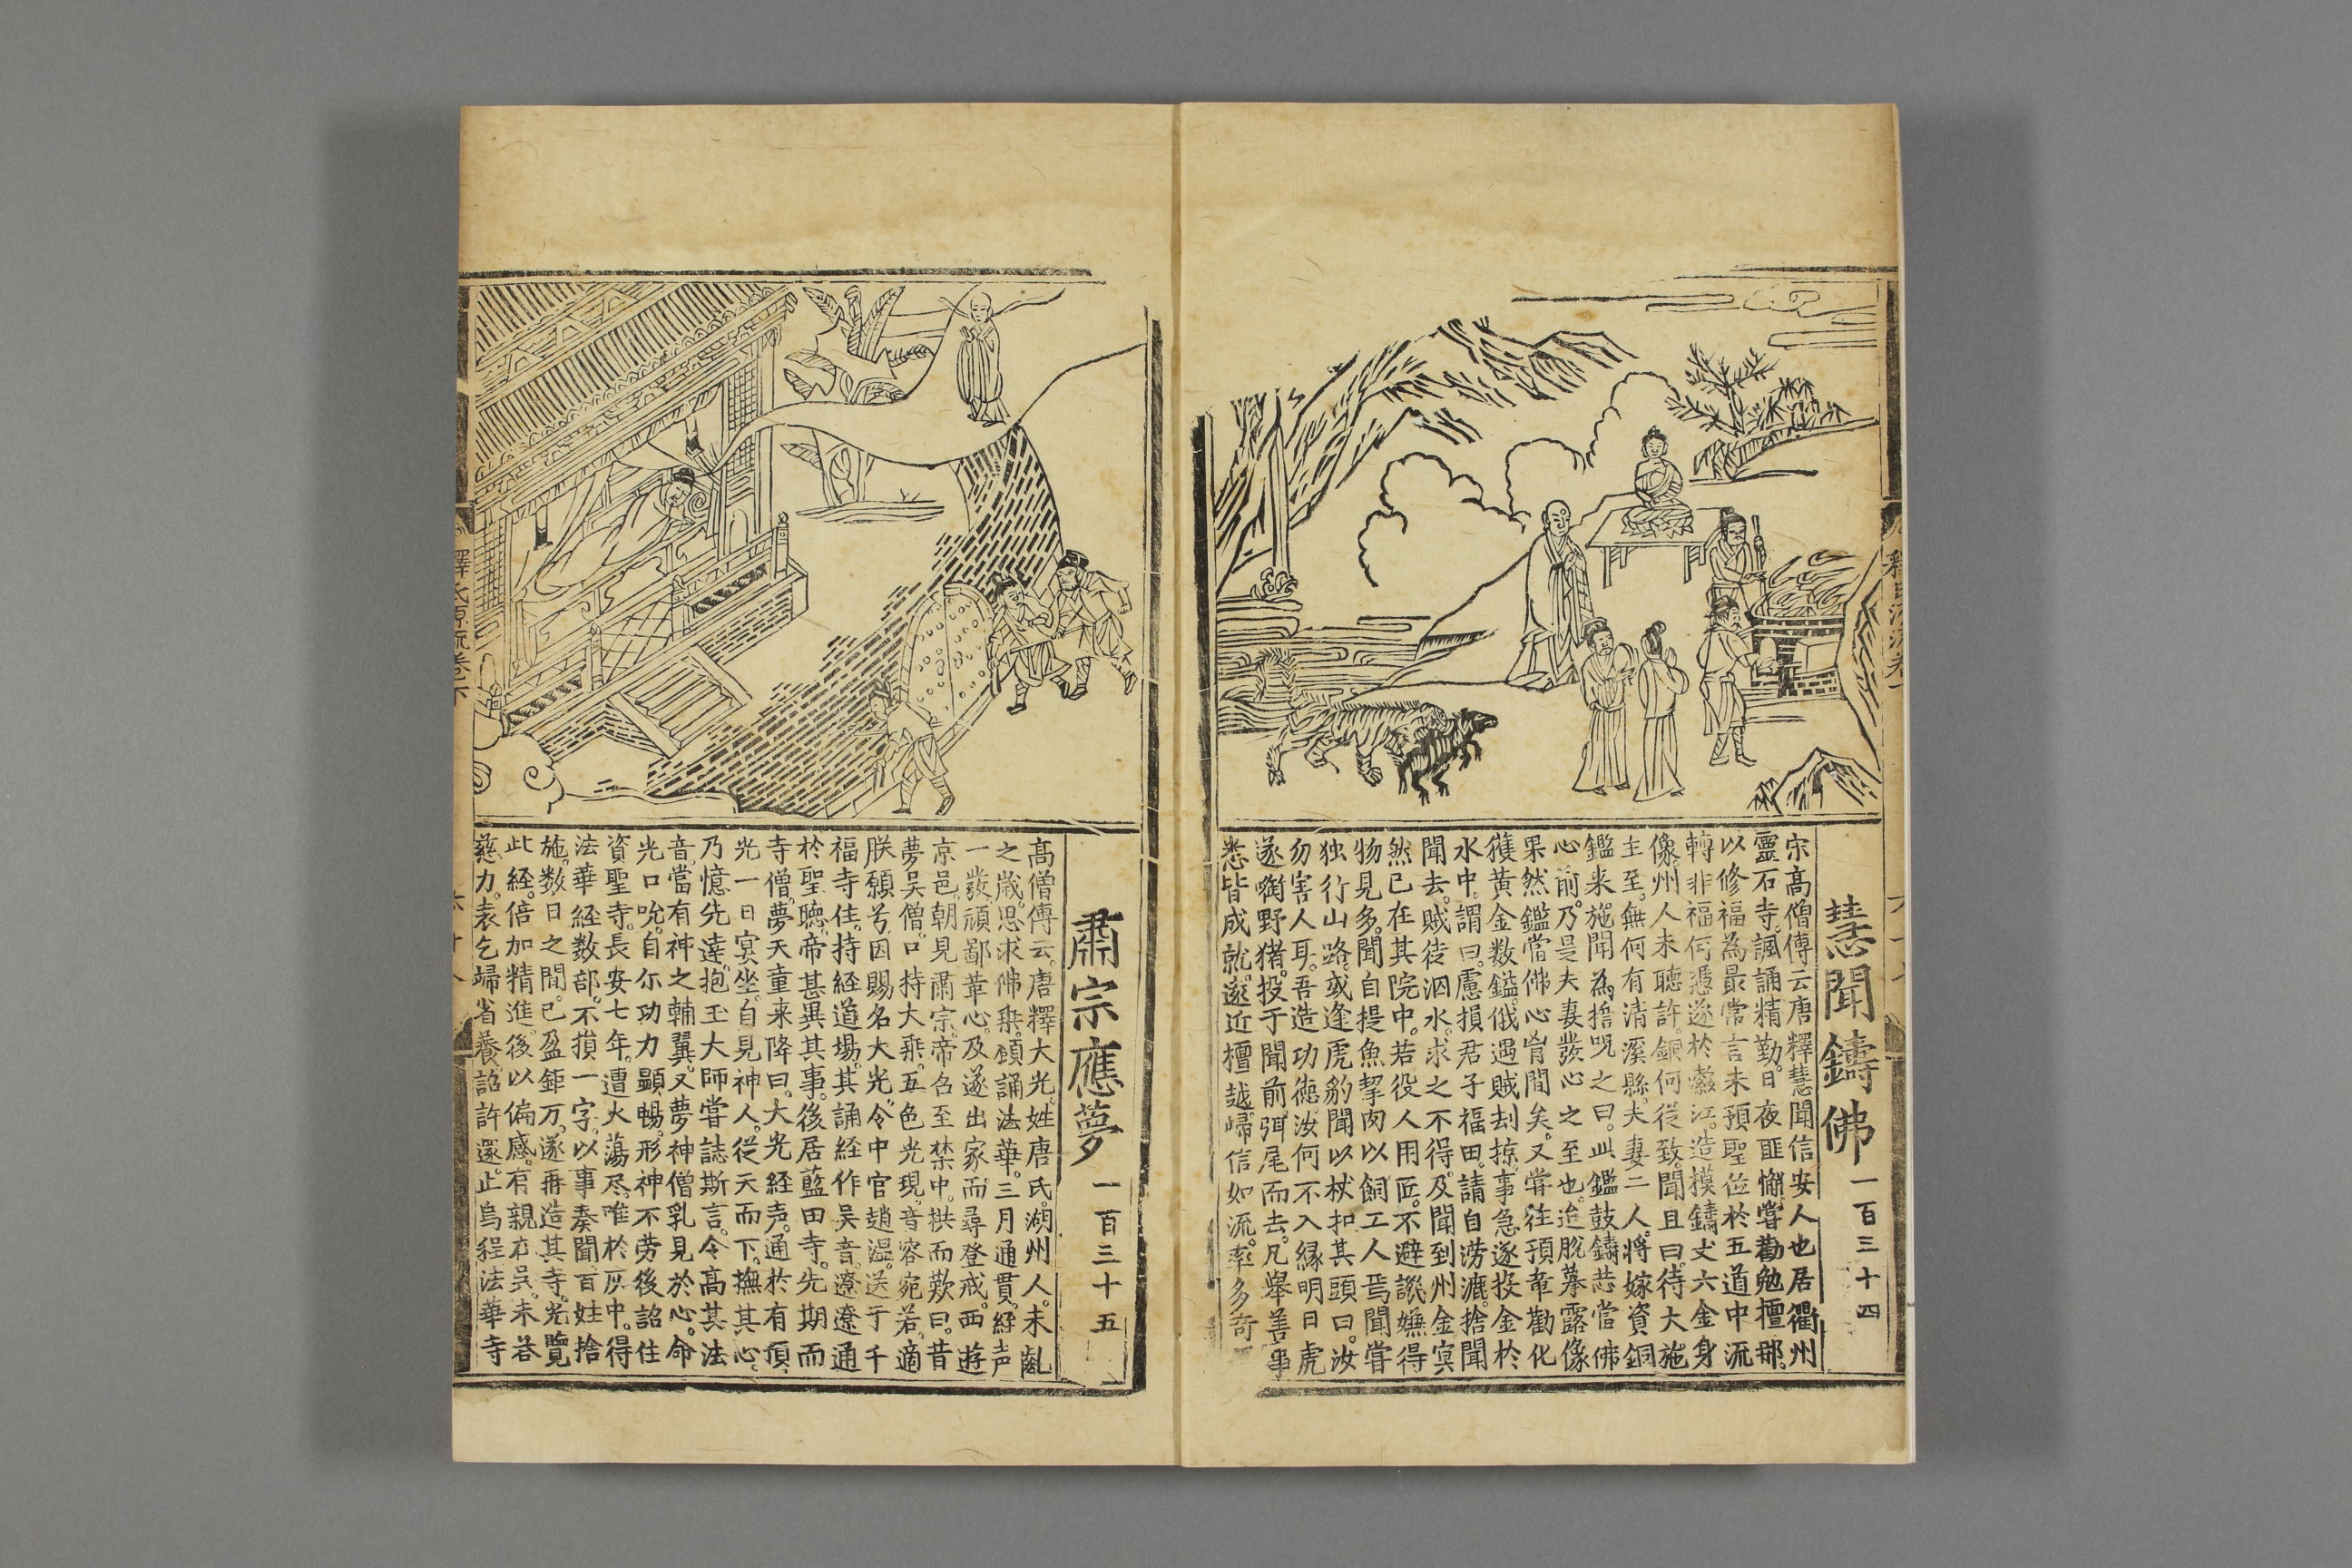 慧聞鑄佛 一百三十四
宋高僧傳云唐釋慧聞信安人也居衢州
靈石寺諷誦精勤日夜匪懈嘗勸勉檀那
以修福為最常言未預聖位於五道中流
轉非福何憑遂於瀫江造模鑄丈六金身
像州人未聽許銅何從致聞且曰待大施
主至無何有清溪縣夫妻二人將嫁資銅
鑑来施聞為擔呪之曰此鑑鼓鑄恭當佛
心前乃是夫妻發心之至也迨脫摹露像
果然鑑當佛心胷間矣又嘗往預章勸化
獲黃金数鎰俄遇賊刦掠事急遂投金於
水中謂曰慮損君子福田請自澇漉捨聞
聞去賊徒泅水求之不得及聞到州金㝠
然已在其院中若役人用匠不避譏嫌得
物見多聞自提魚挈肉以飼工人焉聞嘗
独行山路或逢虎豹聞以杖扣其頭曰汝
勿害人耳吾造功德汝何不入緣明日虎
遂啣野猪投于聞前弭尾而去凡舉善事
悉皆成就遠近檀越歸信如流率多奇
肅宗應夢 一百三十五
高僧傳云唐釋大光姓唐氏湖州人未齓
之歲思求佛乘頋誦法華三月通貫經声
一發頑鄙革心及遂出家而尋登戒西遊
京邑朝見肅宗帝召至禁中拱而歎曰昔
夢吴僧口持大乘五色光現音容宛若適
朕願兮因賜名大光令中官趙温送于千
福寺住持経道場其誦経作吴音遼遼通
於聖聽帝甚異其事後居藍田寺先期而
寺僧夢天童来降曰大光経声通於有頂
光一日㝠坐自見神人從天而下撫其心
乃憶先達抱玉大師嘗誌斯言令高其法
音當有神之輔翼又夢神僧乳見於心命
光口吮自尓功力顯暢形神不劳後詔住
資聖寺長安七年遭火蕩尽唯於灰中得
法華経数部不損一字以事奏聞百姓捨
施数日之間已盈鉅万遂再造其寺光覽
此経倍加精進後以偏感有親在吴未答
慈力表乞歸省養詔許還止烏程法華寺
釋氏源流卷下